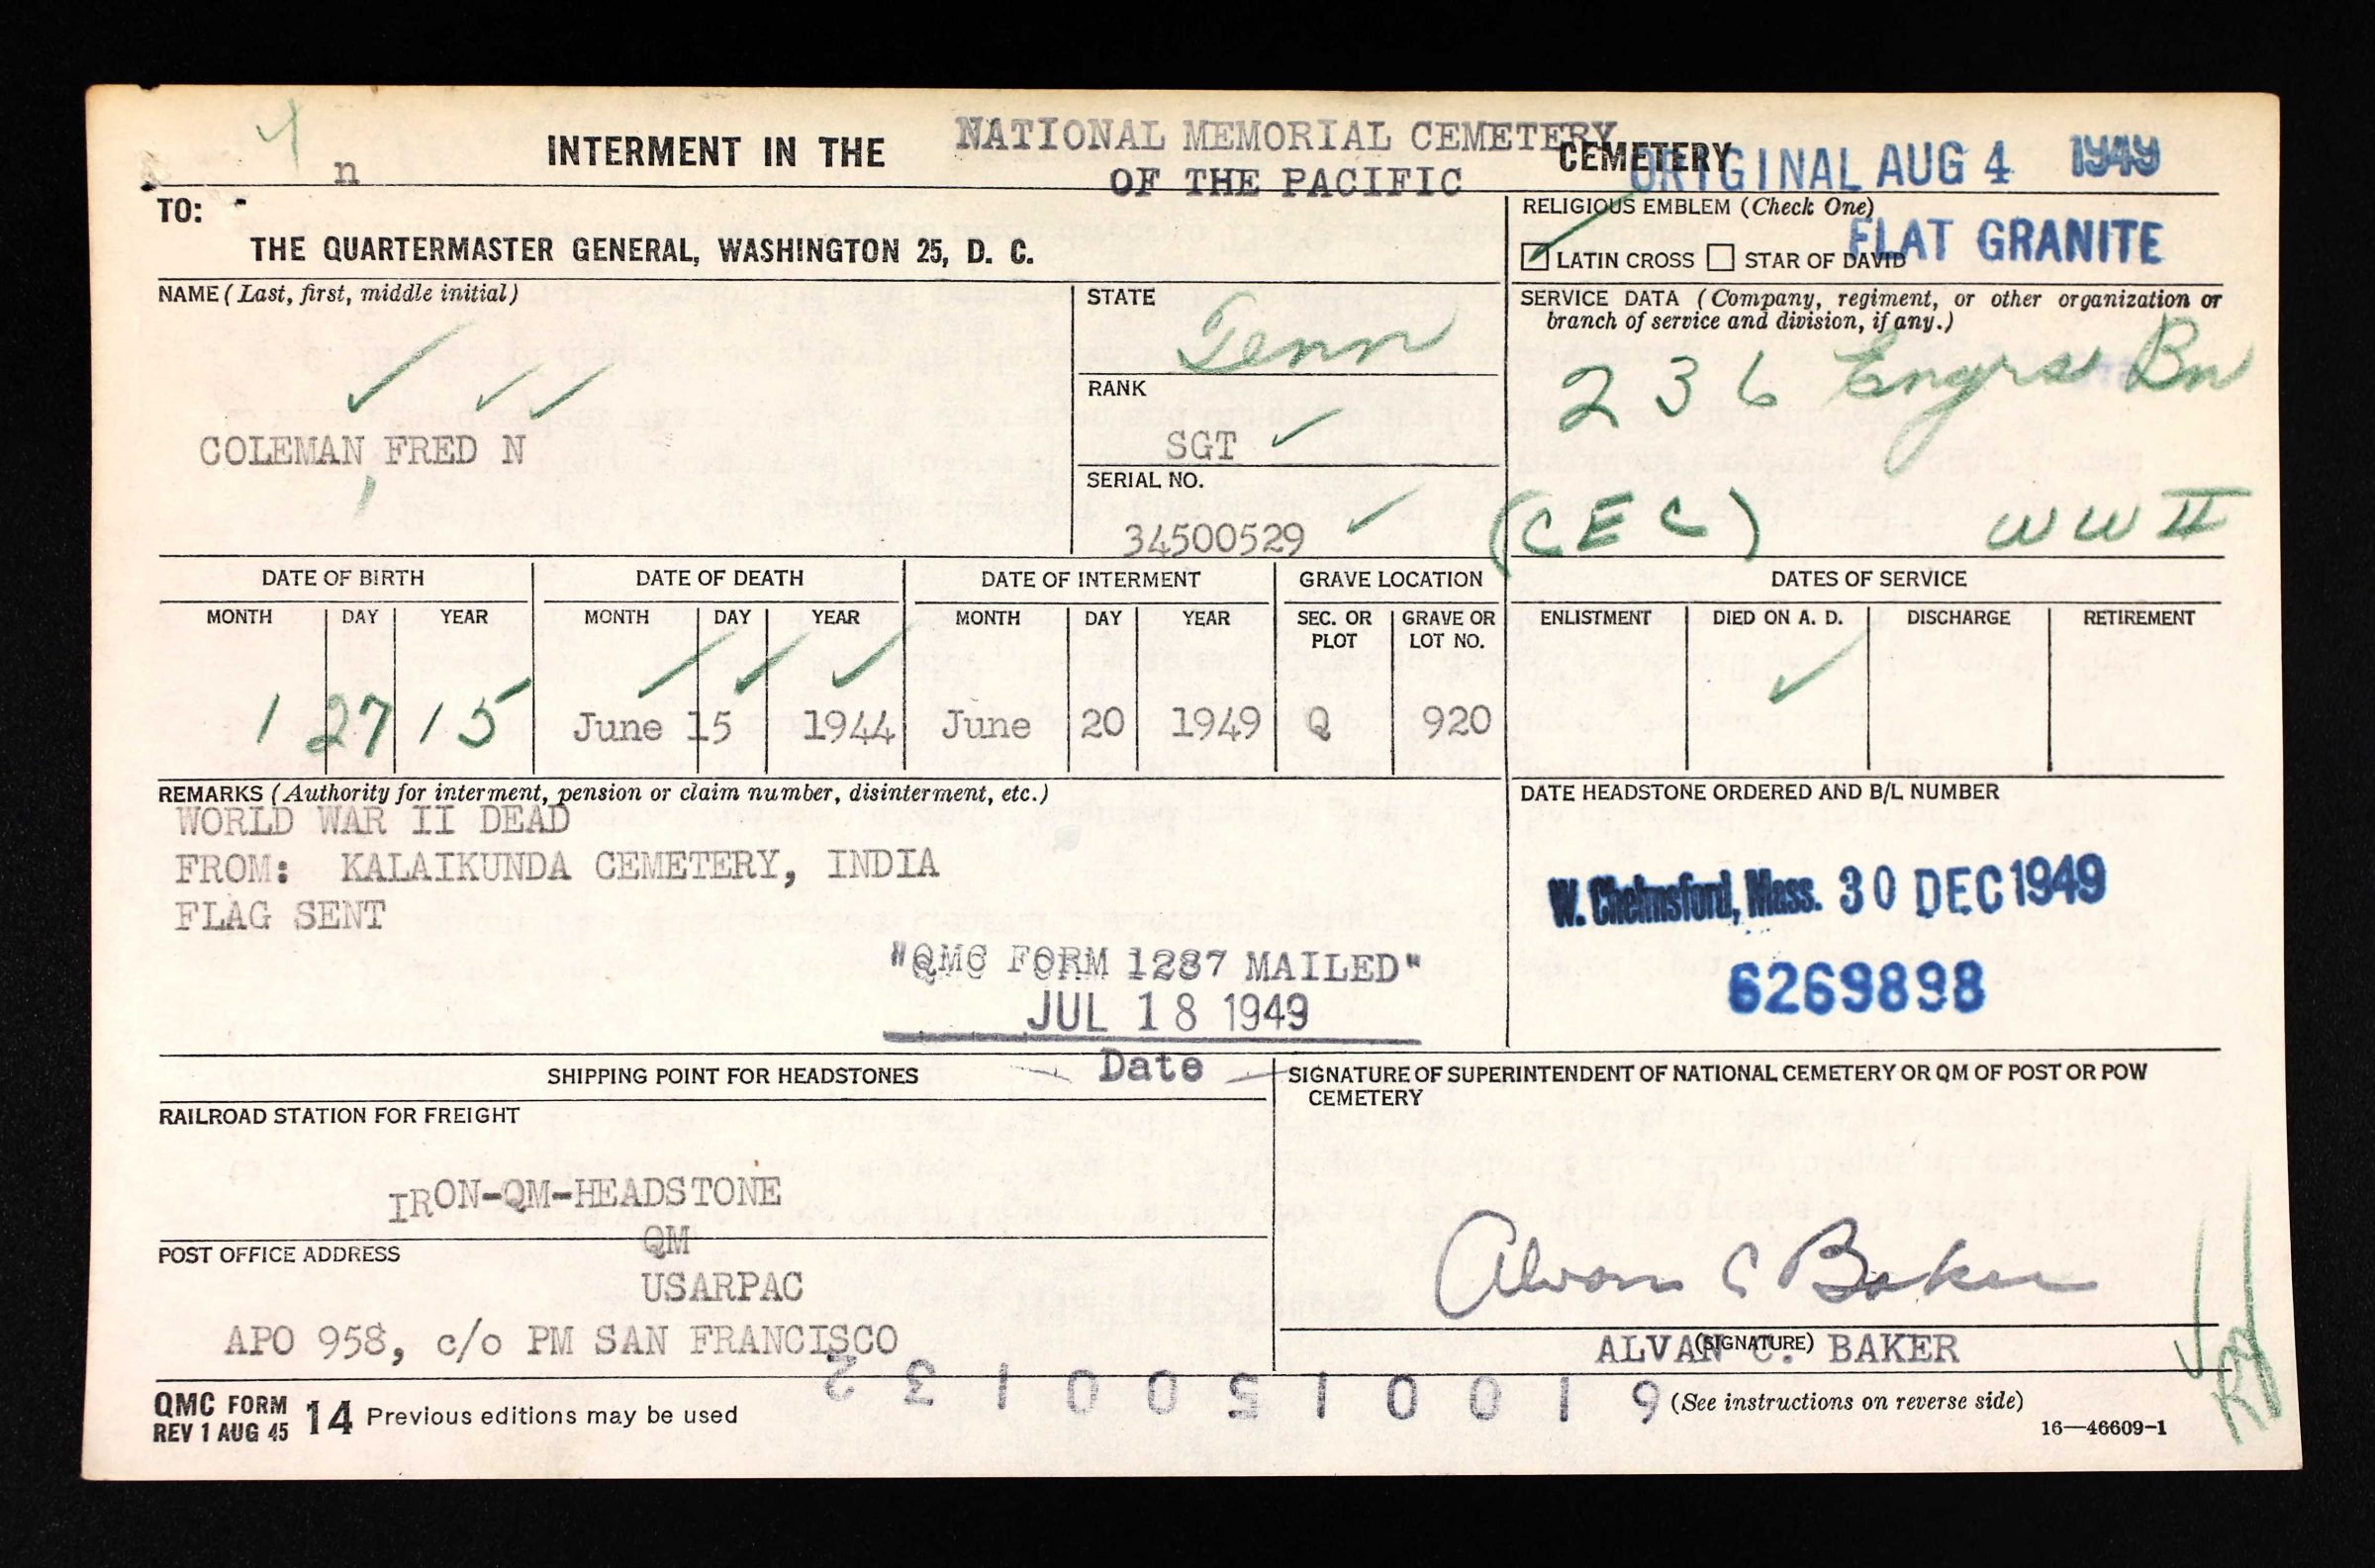 4
n
INTERMENT IN THE NATIONAL MEMORIAL CEMETERY OF THE PACIFIC CEMETERY
ORIGINAL AUG 4 1949
TO:
THE QUARTERMASTER GENERAL, WASHINGTON 25, D. C.
RELIGIOUS EMBLEM (Check One)
LATIN CROSS STAR OF DAVID
FLAT GRANITE
NAME (Last, first, middle initial)
COLEMAN, FRED N
STATE
Tenn
RANK
SGT
SERIAL NO.
34500529
SERVICE DATA (Company, regiment, or other organization or
branch of service and division, if any.)
236 Engrs Bn
(CEC) WW II
DATE OF BIRTH
MONTH DAY YEAR
1 27 15
DATE OF DEATH
MONTH DAY YEAR
June 15 1944
DATE OF INTERMENT
MONTH DAY YEAR
June 20 1949
GRAVE LOCATION
SEC. OR PLOT GRAVE OR LOT NO.
Q 920
DATES OF SERVICE
ENLISTMENT DIED ON A. D. DISCHARGE RETIREMENT
REMARKS (Authority for interment, pension or claim number, disinterment, etc.)
WORLD WAR II DEAD
FROM: KALAIKUNDA CEMETERY, INDIA
FLAG SENT
"QMC FORM 1287 MAILED"
JUL 18 1949
Date
DATE HEADSTONE ORDERED AND B/L NUMBER
W. Chelmsford, Mass. 30 DEC 1949
6269898
SHIPPING POINT FOR HEADSTONES
RAILROAD STATION FOR FREIGHT
IRON-QM-HEADSTONE
QM
POST OFFICE ADDRESS
USARPAC
APO 958, c/o PM SAN FRANCISCO
SIGNATURE OF SUPERINTENDENT OF NATIONAL CEMETERY OR QM OF POST OR POW
CEMETERY
Alvan C Baker
(SIGNATURE)
ALVAN C. BAKER
QMC FORM
REV 1 AUG 45 14 Previous editions may be used
(See instructions on reverse side)
16—46609-1